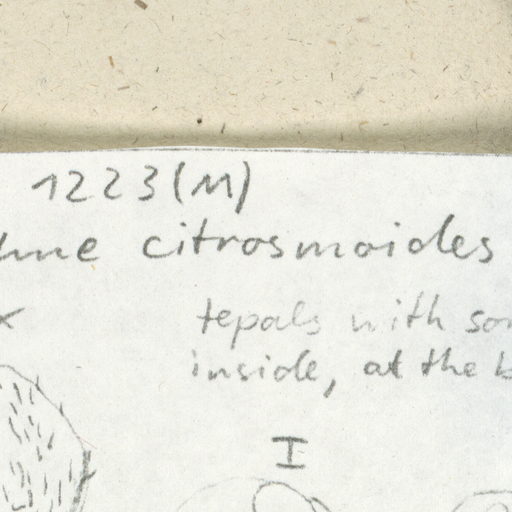 1223 (M)
citrosmoides
x
tepals with
inside, at the
I